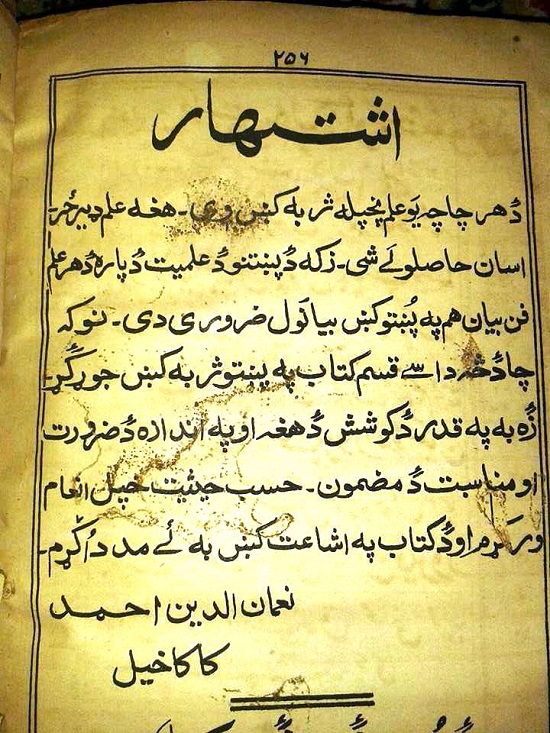 ۲۵۶
اشتهار
دُهر چا چه يو علم پخپله ژبه کښ وی۔ هغه علم ډير زر
اسان حاصلولے شی۔ زکه دُ پښتنو دُ علميت دُ پاره دُ هر علم
فن بيان هم په پُښتو کښ بياناَول ضروری دی۔ نو که
چا دُ څه داسے قسم کتاب په پښتو ژبه کښ جوړ کړ۔
زُه به په قدر دُ کوشش دُ هغه او په اندازه دُ ضرورت
او مناسبت دُ مضمون۔ حسب حيثيت خپل انعام
ورکړم او دُ کتاب په اشاعت کښ به ئے مدد اُکړم۔
نعمان الدين احمد
کاکاخيل